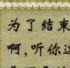 为了结束
啊，听你这